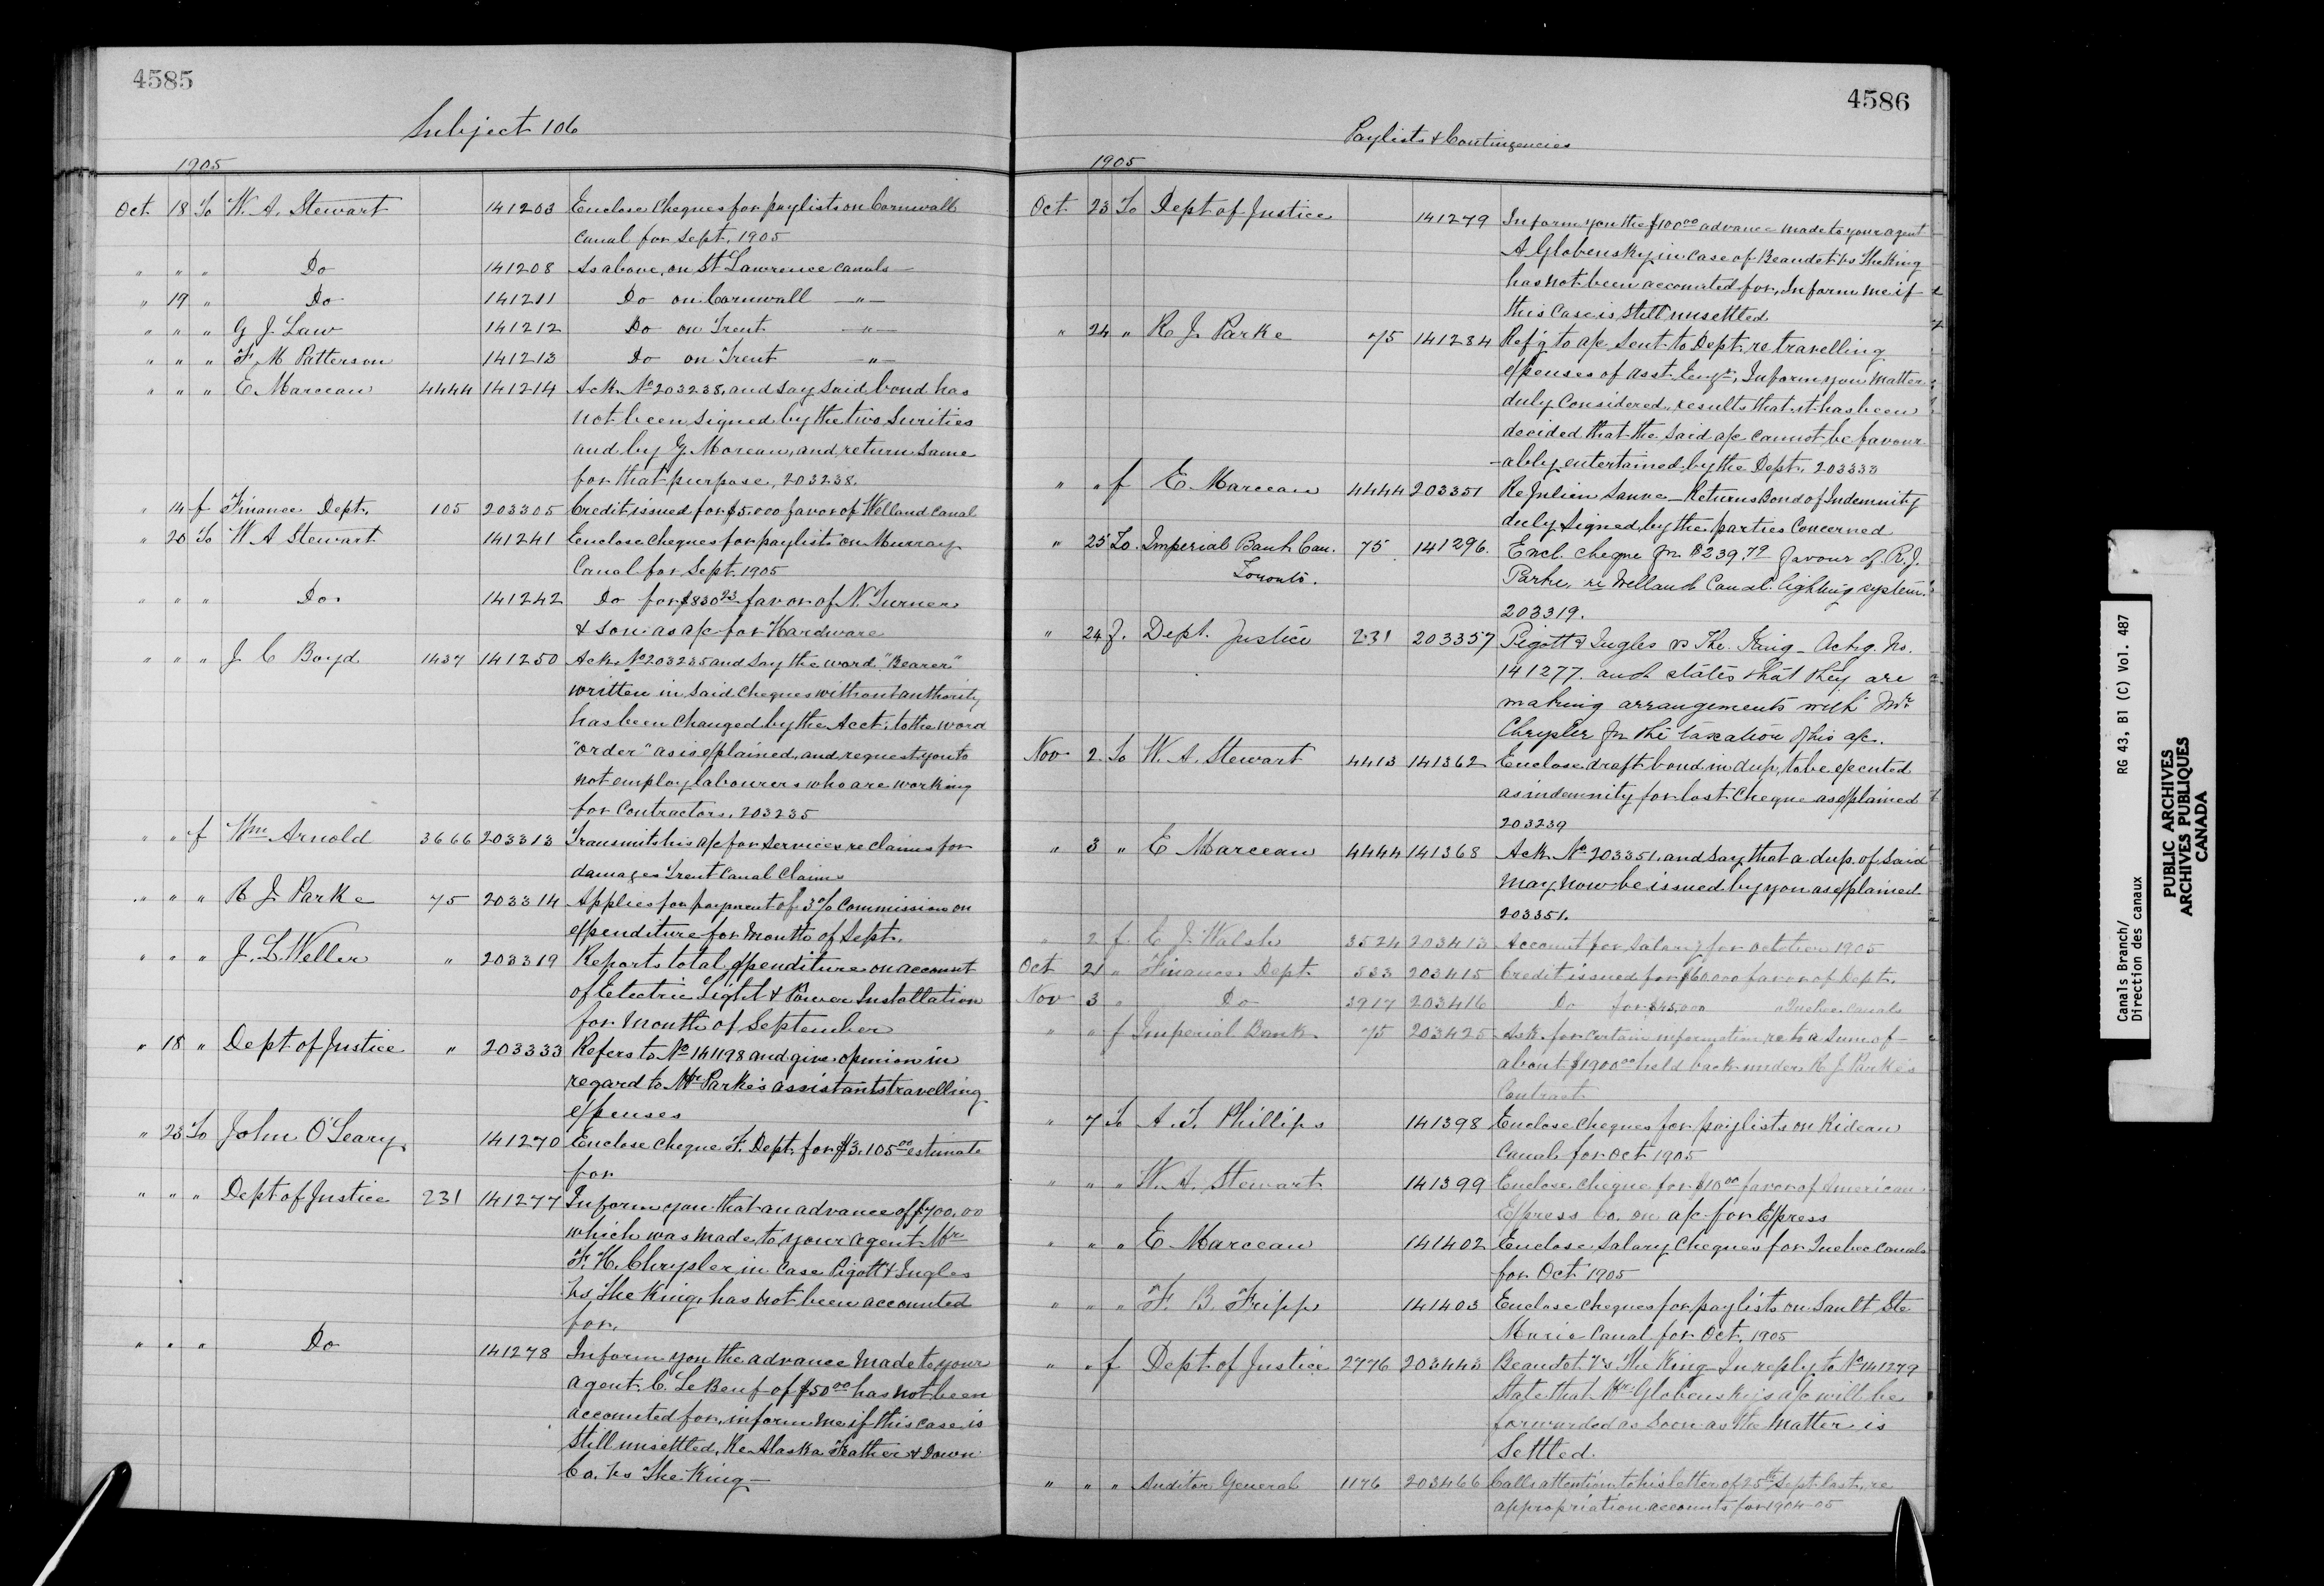 4585
Subject 106
1905
Oct. 18 To W. A. Stewart 141203 Enclose Cheques for paylists on Cornwall
Canal for Sept. 1905
" " " Do 141208 As above, on St Lawrence Canals —
" 19 " Do 141211 Do on Cornwall — " —
" " " G J. Law 141212 Do on Trent — " —
" " " F. M Patterson 141213 Do on Trent — " —
" " " E Marceau 4444 141214 Ack. No 203238, and say said bond has
not been signed by the two Surities
and by G. Moreau, and return same
for that purpose, 203238.
" 14 f Finance Dept. 105 203305 Credit issued for $5.000 favor of Welland Canal
" 20 To W A Stewart 141241 Enclose cheques for paylists on Murray
Canal for Sept. 1905
" " " Do. 141242 Do for $830 23 favor of N. Turner
& son as a/c for Hardware
" " " J C Boyd 1437 141250 Ack. No 203235 and say the word "Bearer"
written in said Cheques without authority
has been changed by the Acct. to the word
"order" as is explained, and request you to
not employ labourers who are working
for Contractors, 203235
" " f Wm Arnold 3666 203313 Transmits his a/c for Services re claims for
damages Trent Canal Claims
" " " R J. Parke 75 203314 Applies for payment of 3% Commission on
expenditure for Month of Sept.
" " " J. L. Weller " 203319 Reports total expenditure on account
of Electric Light & Power Installation
for month of September
" 18 " Dept of Justice " 203333 Refers to No 141198 and give opinion in
regard to Mr Parke's assistants travelling
expenses
" 23 To John O'Leary 141270 Enclose cheque F. Dept. for $3.105 00 estimate
for
" " " Dept of Justice 231 141277 Inform you that an advance of $700.00
which was made to your agent Mr
F. H. Chrysler in Case Pigott & Ingles
vs The King, has not been accounted
for,
" " " Do 141278 Inform you the advance made to your
agent C. Le Beuf of $50 00 has not been
accounted for, inform me if this case is
still unsettled, Re Alaska Feather & Down
Co. vs The King —
4586
Paylists & Contingencies
1905
Oct 23 To Dept of Justice 141279 Inform you the $100 00 advance made to your agent
A Globensky in case of Beaudet vs The King
has not been accounted for, Inform me if
this Case is still unsettled
" 24 " R J. Parke 75 141284 Ref'g to a/c sent to Dept. re travelling
expenses of asst. Engr., Inform you matter
duly Considered, results that it has been
decided that the said a/c cannot be favour
-ably entertained by the Dept. 203333
" " f E. Marceau 4444 203351 Re Julien Sauve — Returns Bond of Indemnity
duly signed by the parties Concerned
" 25 To. Imperial Bank Can. 75 141296. Encl. cheque for $239.79 favour of R. J.
Toronto.
Parke, re Welland Canal lighting system.
203319.
" 24 f. Dept. Justice 231 203357 Pigott & Ingles vs The King — Ackg. No.
141277. and states that they are
making arrangements with Mr.
Chrysler for the taxation of his a/c.
Nov 2 To W. A. Stewart 4413 141362 Enclose draft bond in dup, to be executed
as indemnity for lost Cheque as explained
203239
" 3 " E Marceau 4444 141368 Ack No 203351, and say that a dup. of said
may now be issued by you as explained
203351.
" 2 f. E J. Walsh 3524 203413 Account for Salary for october 1905
Oct 21 " Finance Dept. 533 203415 Credit issued for $60000 favor of Dept.
Nov 3 " Do 3917 203416 Do for $45,000 " Quebec Canals
" " f Imperial Bank 75 203425 Ask for certain information re to a sum of
about $1900 00 held back under R J. Parke's
Contract
" 7 To A. T. Phillips 141398 Enclose cheques for paylists on Rideau
Canal for Oct 1905
" " " W. A. Stewart 141399 Enclose cheque for $10 00 favor of American
Express Co. on a/c for Express
" " " E Marceau 141402 Enclose Salary Cheques for Quebec Canals
for Oct 1905
" " " F. B. Fripp 141403 Enclose cheques for paylists on Sault Ste
Marie Canal for Oct. 1905
" " f Dept of Justice 2776 203443 Beaudet. Vs The King — In reply to No 141279
State that Mr Globensky's a/c will be
forwarded as soon as the matter is
Settled.
" " " Auditor General 1176 203466 Calls attention to his letter of 25th Sept. last, re
appropriation accounts for 1904-05
Canals Branch/ RG 43, B1 (C) Vol. 487
Direction des canaux
PUBLIC ARCHIVES
ARCHIVES PUBLIQUES
CANADA